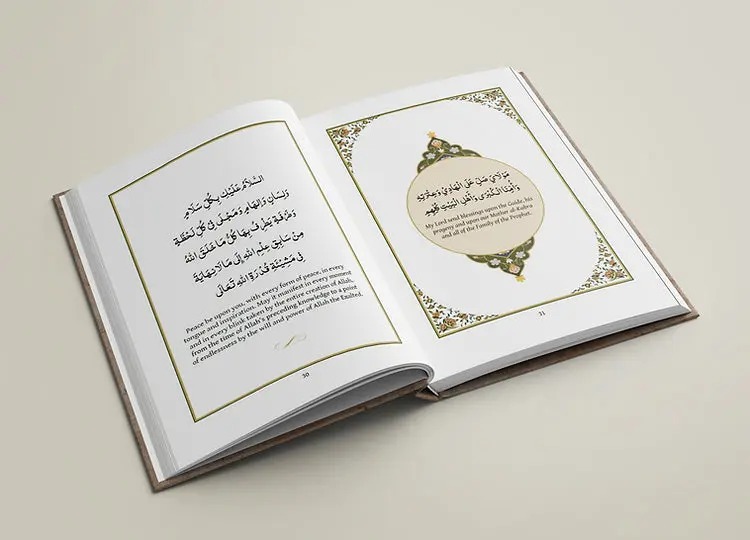 السَّلَامُ عَلَيْكَ بِكُلِّ سَلَامٍ
وَلِسَانٍ وَإِلْهَامٍ وَمَجْلًى فِي كُلِّ لَحْظَةٍ
وَطَرْفَةٍ يَطْرِفُ بِهَا كُلُّ مَا خَلَقَ اللهُ
مِنْ سَابِقِ عِلْمِ اللهِ إِلَى مَا لَا نِهَايَةَ
فِي مَشِيئَةِ قُدْرَةِ اللهِ تَعَالَى
Peace be upon you, with every form of peace, in every
tongue and inspiration. May it manifest in every moment
and in every blink taken by the entire creation of Allah,
from the time of Allah's preceding knowledge to a point
of endlessness by the will and power of Allah the Exalted.
30
مَوْلَايَ صَلِّ عَلَى الْهَادِي وَعِتْرَتِهِ
وَأُمِّنَا الْكُبْرَى وَأَهْلِ الْبَيْتِ كُلِّهِمِ
My Lord send blessings upon the Guide, his
progeny and upon our Mother al-Kubra
and all of the Family of the Prophet.
31